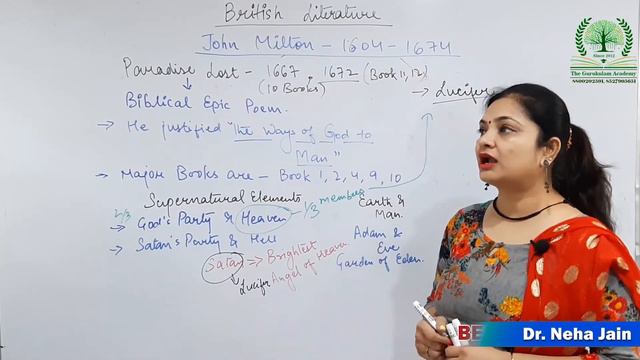 British Literature
John Milton - 1604 - 1674
Paradise Lost - 1667, 1672 (Book 11, 12)
(10 Books)
→ Lucifer
Biblical Epic Poem.
→ He justified "the ways of God to
Man"
→ Major Books are - Book 1, 2, 4, 9, 10
Supernatural Elements
Earth &
Man.
2/3
→ God's Party & Heaven - 1/3 members
→ Satan's Party & Hell
Adam &
Eve
Garden of Eden.
Satan ⇒ Brightest
Angel of Heaven
Lucifer
The Gurukulam Academy
Since 2012
8800202301, 8527905651
BE
Dr. Neha Jain